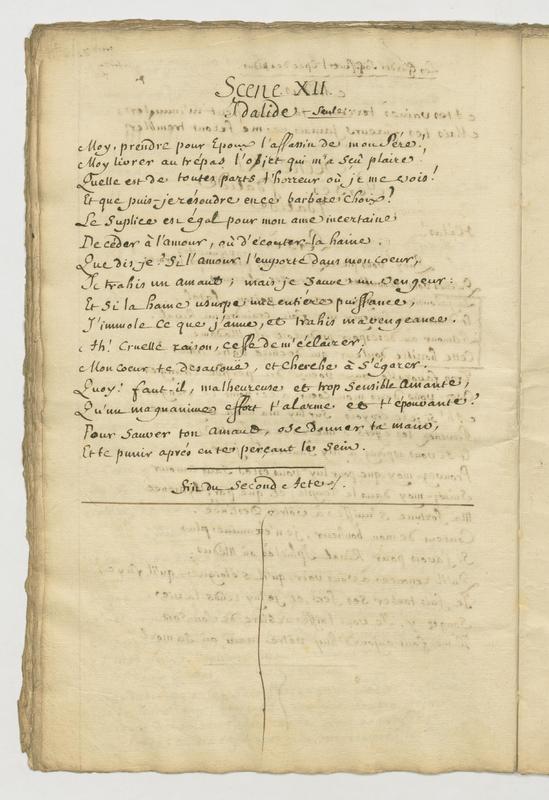 Scene XII
Adalide Seule.
Moy, prendre pour Epoux l'assassin de mon Pére,
Moy livrer au trépas l'objet qui m'a sçû plaire!
Quelle est de toutes parts l'horreur où je me vois!
Et que puis-je résoudre en ce barbare choix!
Le Suplice est égal pour mon ame incertaine
De ceder à l'amour, où d'écouter la haine.
Que dis je? Si l'amour l'emporte dans mon coeur,
Je trahis un Amant; mais je Sauve un vengeur:
Et Si la haine usurpe une entiére puissance,
J'immole Ce que j'aime, et trahis ma vengeance.
Ah! Cruelle raison, cesse de m'éclairer.
Mon Coeur te desavoüe, et Cherche à S'égarer.
Quoy! faut-il, malheureuse et trop Sensible Amante,
Qu'un magnanime effort t'alarme et t'épouvante?
Pour Sauver ton Amant, ose donner ta main,
Et te punir aprés en te perçant le Sein.
Fin du Second Acte.